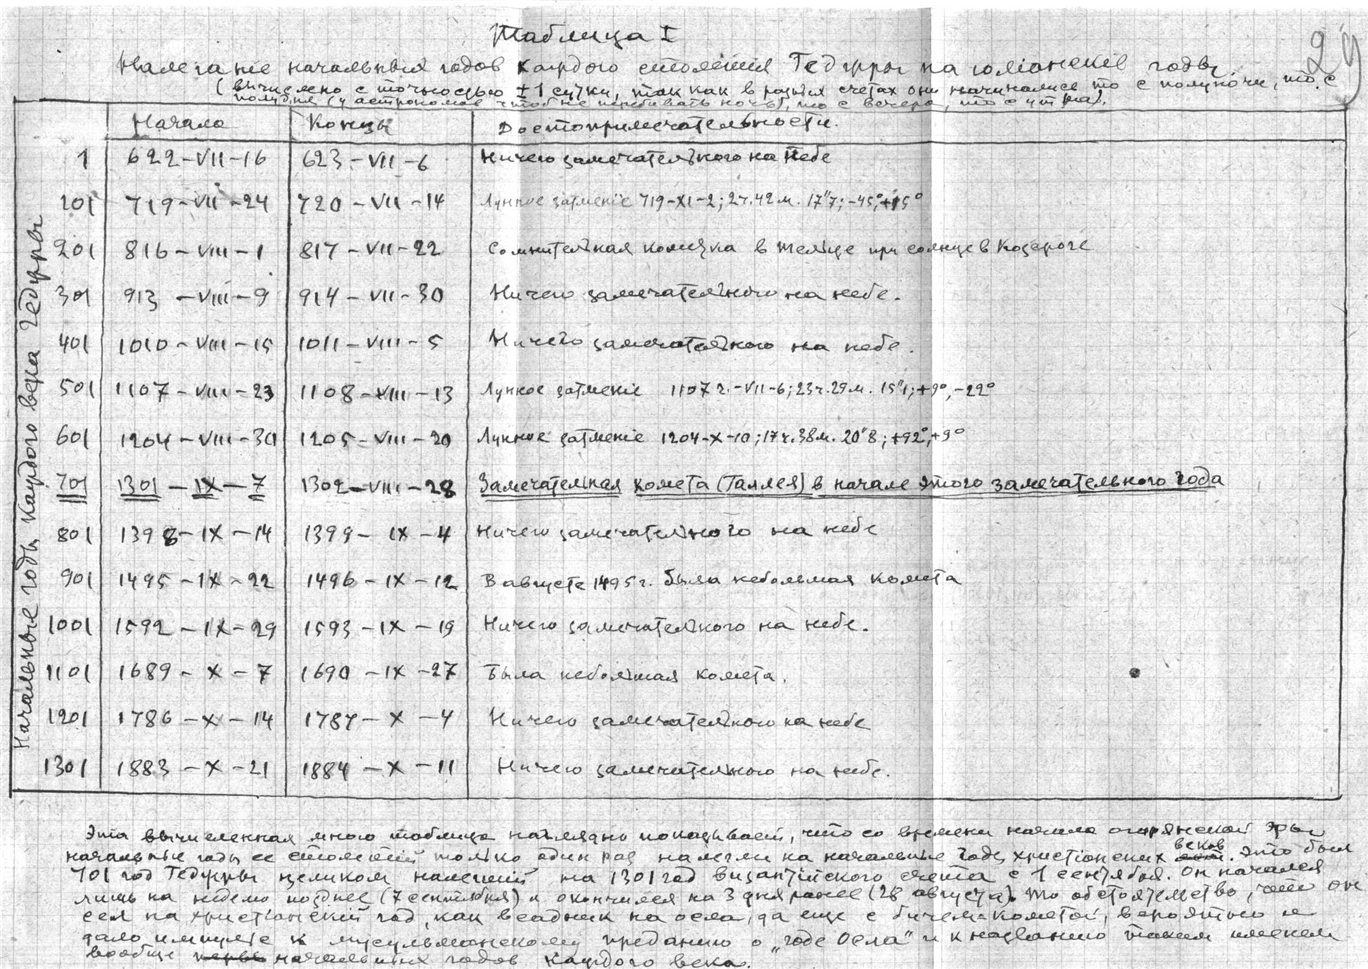 Таблица I
29
Налегание начальных годов каждого столетия Гедурры на юлианские годы
(вычислено с точностью ±1 сутки, так как в разных счетах они начинались то с полуночи, то с
полудня (у астрономов чтоб не перебивать ночь), то с вечера, то с утра).
Начало Концы Достопримечательности.
Начальные годы каждого века Гедурры
1 622-VII-16 623-VII-6 Ничего замечательного на небе
101 719-VII-24 720-VII-14 Лунное затмение 719-XI-2; 2ч.42м. 17"7; -45°,+15°
201 816-VIII-1 817-VII-22 Сомнительная комета в Тельце при солнце в Козероге
301 913-VIII-9 914-VII-30 Ничего замечательного на небе.
401 1010-VIII-15 1011-VIII-5 Ничего замечательного на небе.
501 1107-VIII-23 1108-VIII-13 Лунное затмение 1107 г.-VII-6; 23ч.29м. 15"1; +9°,-22°
601 1204-VIII-30 1205-VIII-20 Лунное затмение 1204-X-10; 17ч.38м. 20"8; +92°,+9°
701 1301-IX-7 1302-VIII-28 Замечательная комета (Галлея) в начале этого замечательного года
801 1398-IX-14 1399-IX-4 Ничего замечательного на небе
901 1495-IX-22 1496-IX-12 В августе 1495 г. была небольшая комета
1001 1592-IX-29 1593-IX-19 Ничего замечательного на небе.
1101 1689-X-7 1690-IX-27 Была небольшая комета.
1201 1786-X-14 1787-X-4 Ничего замечательного на небе
1301 1883-X-21 1884-X-11 Ничего замечательного на небе.
Эта вычисленная мною таблица наглядно показывает, что со времени начала агарянской эры
начальные годы ее столетий только один раз налегли на начальные годы христианских веков. Это был
701 год Гедурры целиком налегший на 1301 год византийского счета с 1 сентября. Он начался
лишь на неделю позднее (7 сентября) и окончился на 3 дня ранее (28 августа). То обстоятельство, что он
сел на христианский год, как всадник на осла, да еще с бичем-кометой, вероятно и
дало импульс к мусульманскому преданию о „годе Осла" и к названию таким именем
вообще начальных годов каждого века.